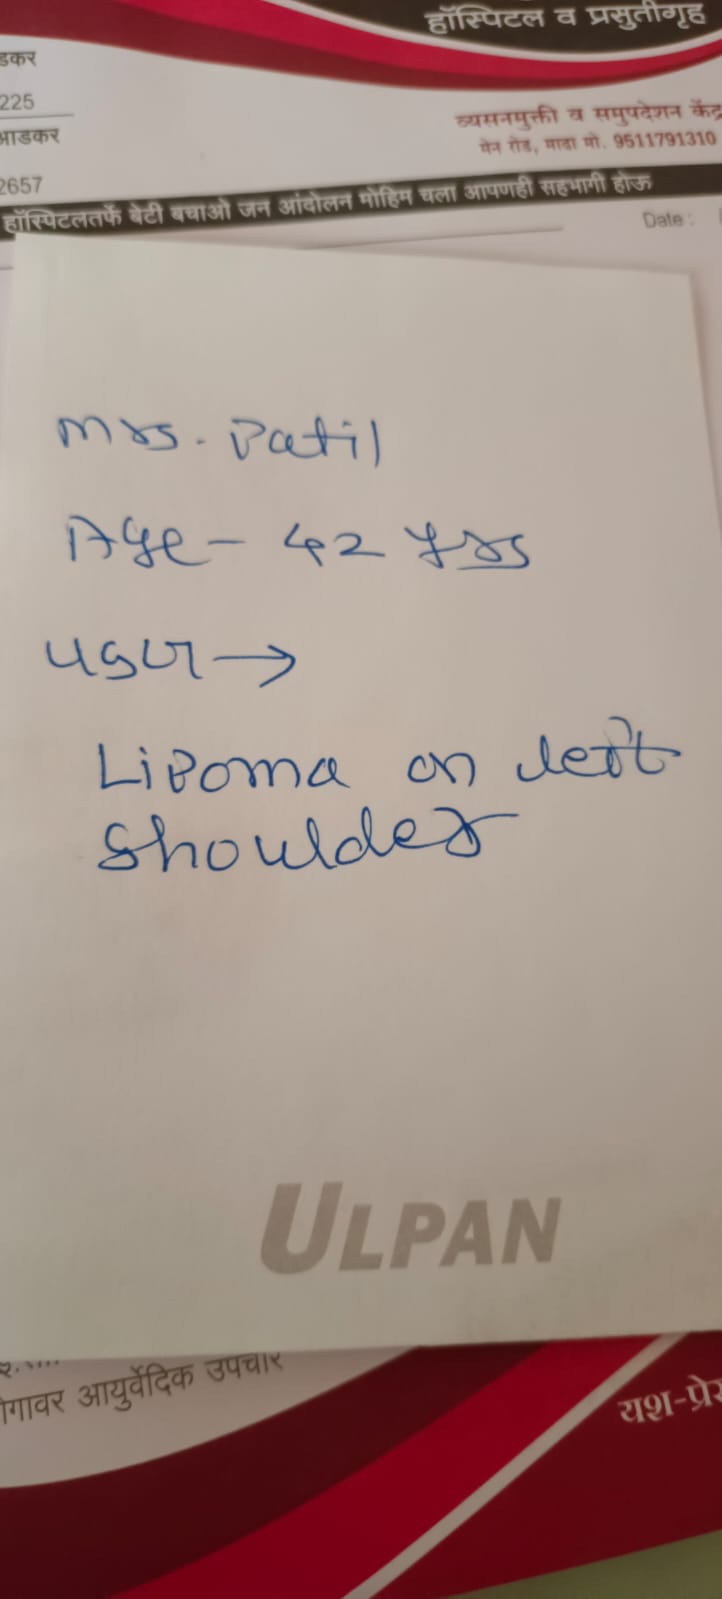 हॉस्पिटल व प्रसुतीगृह
डकर
225
आडकर
2657
व्यसनमुक्ती व समुपदेशन केंद्र
मेन रोड, माढा मो. 9511791310
हॉस्पिटलतर्फे बेटी बचाओ जन आंदोलन मोहिम चला आपणही सहभागी होऊ
Date :
Mrs. Patil
Age - 42 yrs
USG →
Lipoma on left
shoulder
ULPAN
गावर आयुर्वेदिक उपचार
यश-प्रे